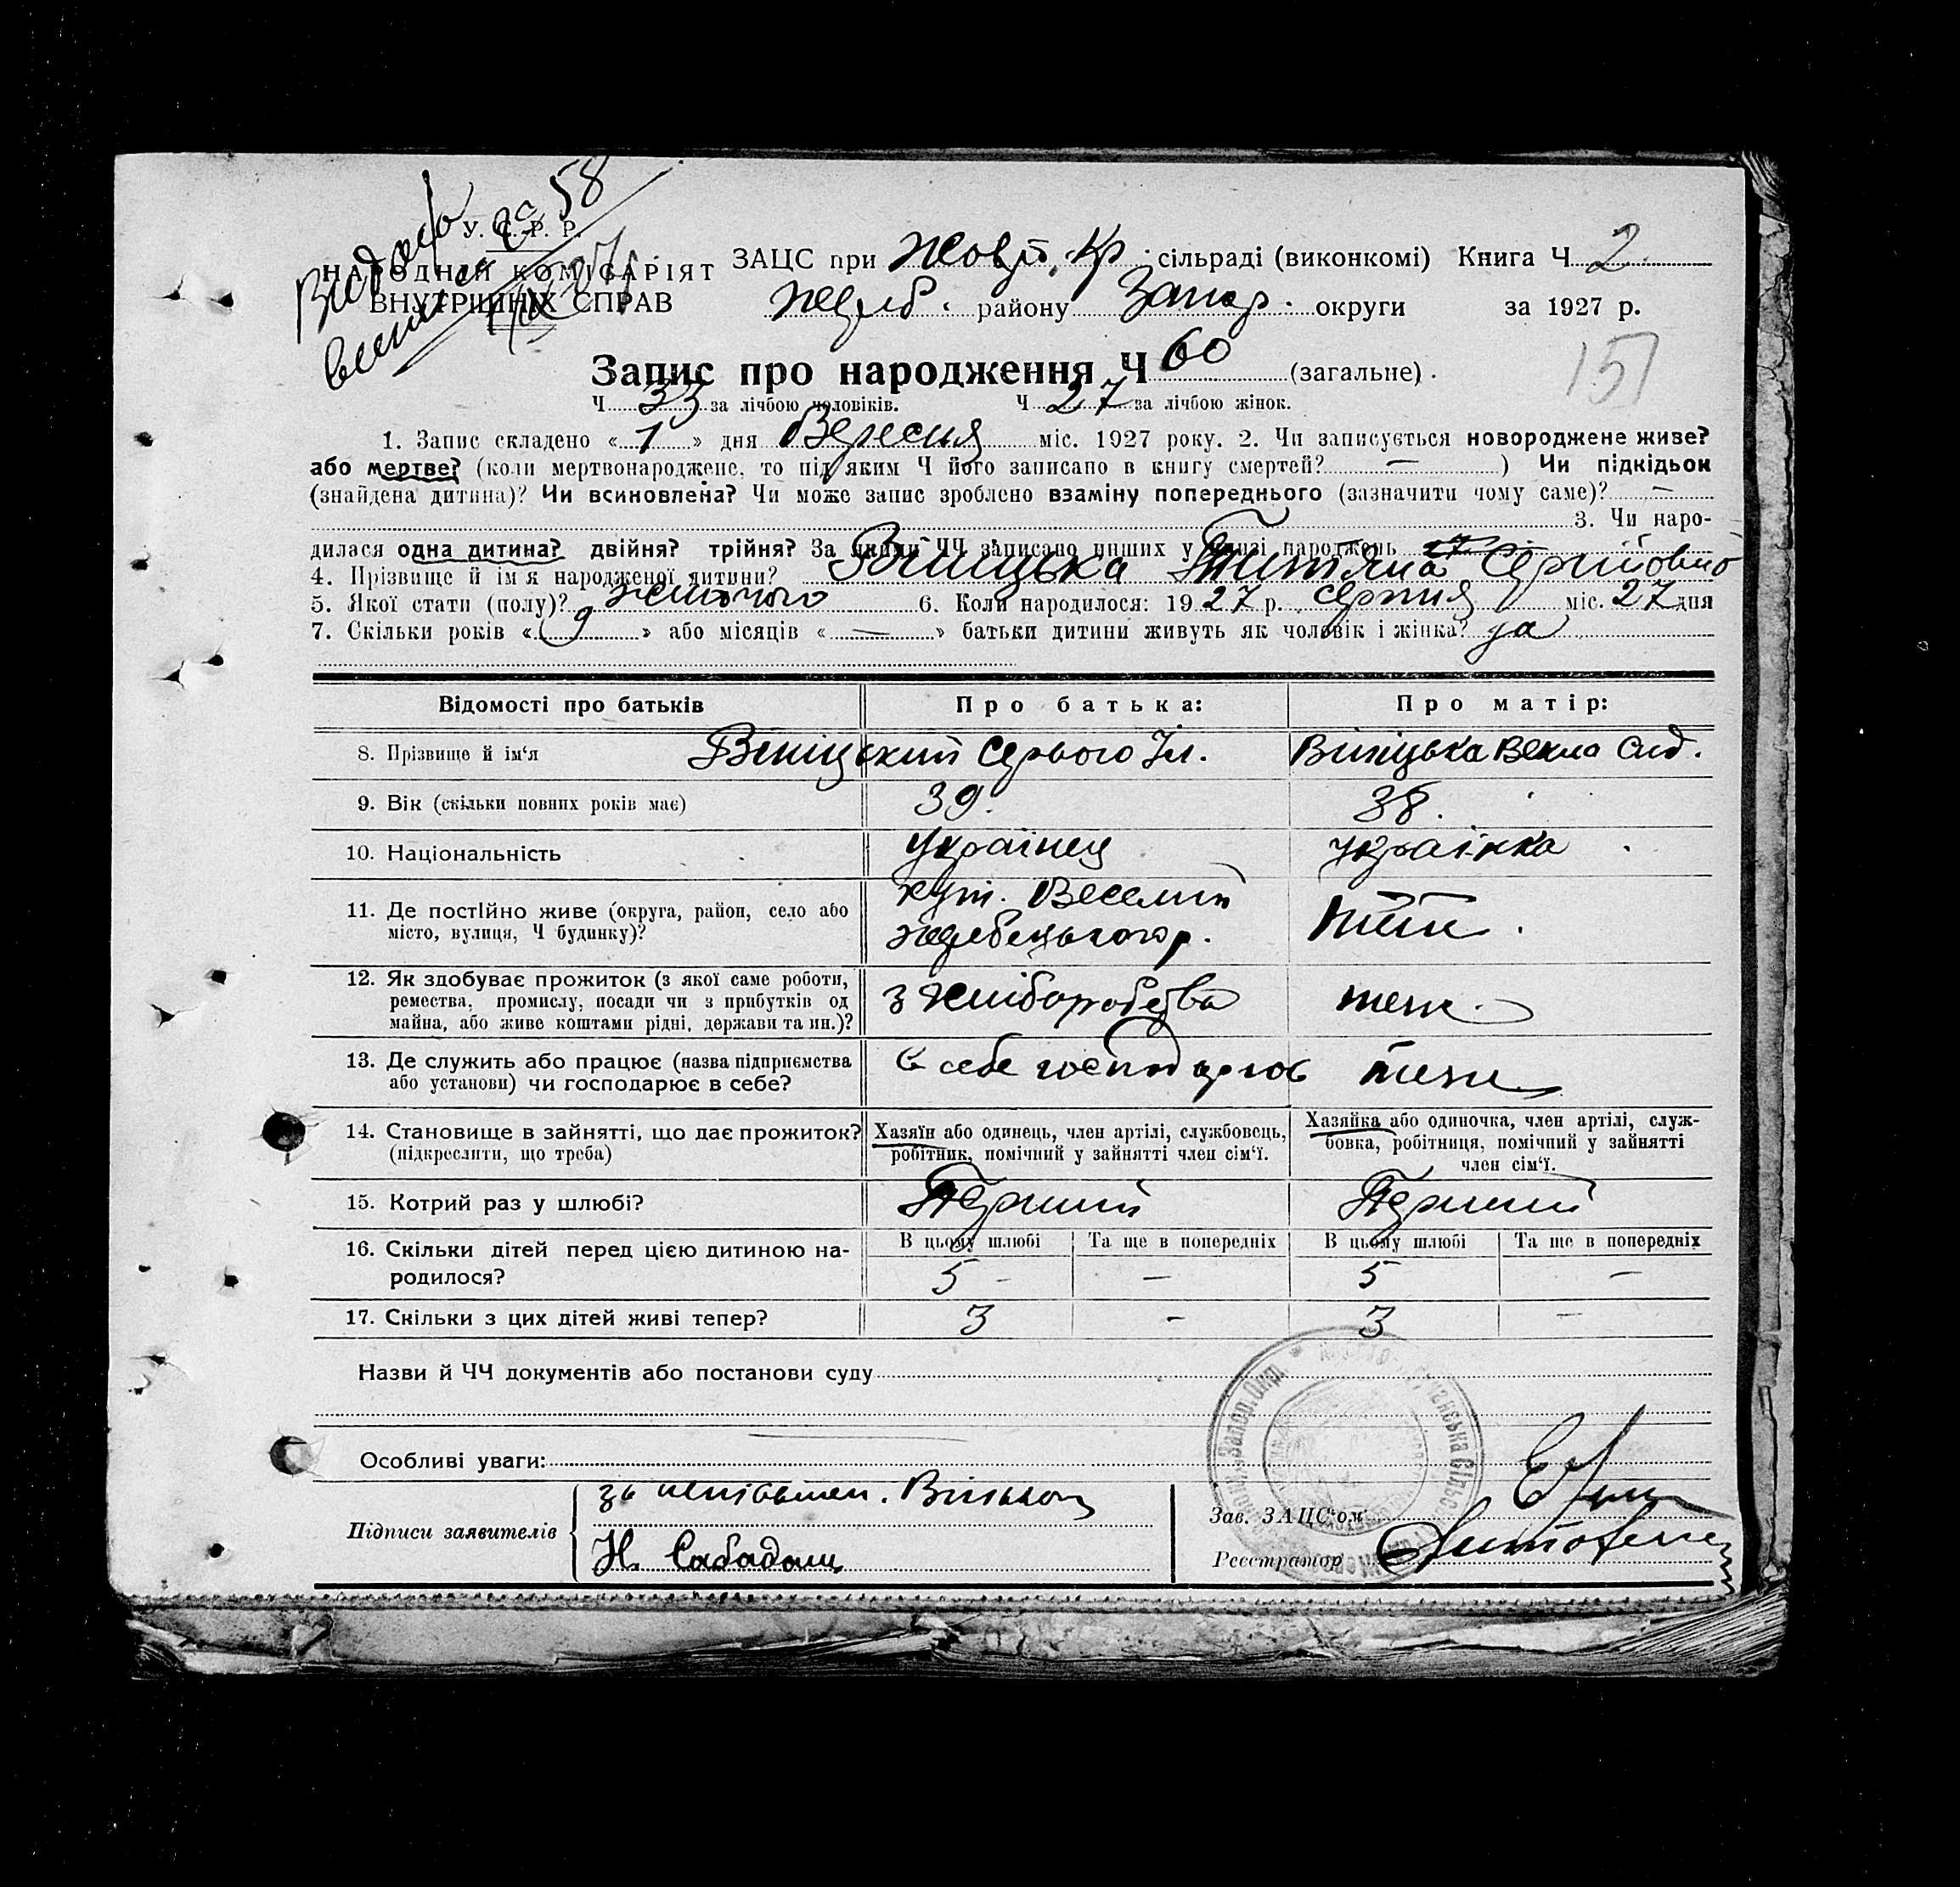 Видано
58
У. С. Р. Р.
НАРОДНІЙ КОМІСАРІЯТ
ВНУТРІШНІХ СПРАВ
ЗАЦС при Жовт. Кр. сільраді (виконкомі) Книга Ч 2
Жереб. району Запор. округи за 1927 р.
151
Запис про народження Ч 60 (загальне).
Ч 33 за лічбою чоловіків. Ч 27 за лічбою жінок.
1. Запис складено « 1 » дня Вересня міс. 1927 року. 2. Чи записується новороджене живе?
або мертве? (коли мертвонароджене, то під яким Ч його записано в книгу смертей? — ) Чи підкідьок
(знайдена дитина)? Чи всиновлена? Чи може запис зроблено взаміну попереднього (зазначити чому саме)? —
3. Чи наро-
дилася одна дитина? двійня? трійня? За якими ЧЧ записано инших у книзі народжень
4. Прізвище й ім'я народженої дитини? Вініцька Титяна Сергійовно
5. Якої стати (полу)? жіночого 6. Коли народилося: 1927 р. Серпня міс. 27 дня
7. Скільки років « 9 » або місяців « — » батьки дитини живуть як чоловік і жінка? да
Відомості про батьків Про батька: Про матір:
8. Прізвище й ім'я Вініцький Сергього Іл. Вініцька Векла Сид.
9. Вік (скільки повних років має) 39. 38.
10. Національність Українец українка
11. Де постійно живе (округа, район, село або місто, вулиця, Ч будинку)? хут. Веселий
Жеребецького р. тут.
12. Як здобуває прожиток (з якої саме роботи,
ремества, промислу, посади чи з прибутків од
майна, або живе коштами рідні, держави та ин.)? з хліборобства теж.
13. Де служить або працює (назва підприємства
або установи) чи господарює в себе? в себе господарює теж
14. Становище в зайнятті, що дає прожиток?
(підкреслити, що треба)
Хазяїн або одинець, член артілі, службовець,
робітник, помічний у зайнятті член сім'ї.
Хазяйка або одиночка, член артілі, служ-
бовка, робітниця, помічний у зайнятті
член сім'ї.
15. Котрий раз у шлюбі? Перший Перший
16. Скільки дітей перед цією дитиною на-
родилося?
В цьому шлюбі Та ще в попередніх В цьому шлюбі Та ще в попередніх
5 — 5 —
17. Скільки з цих дітей живі тепер? 3 — 3 —
Назви й ЧЧ документів або постанови суду
Особливі уваги:
Підписи заявителів
за неписьмен.
Н. Сабадаш
Зав. ЗАЦС'ом
Реєстратор